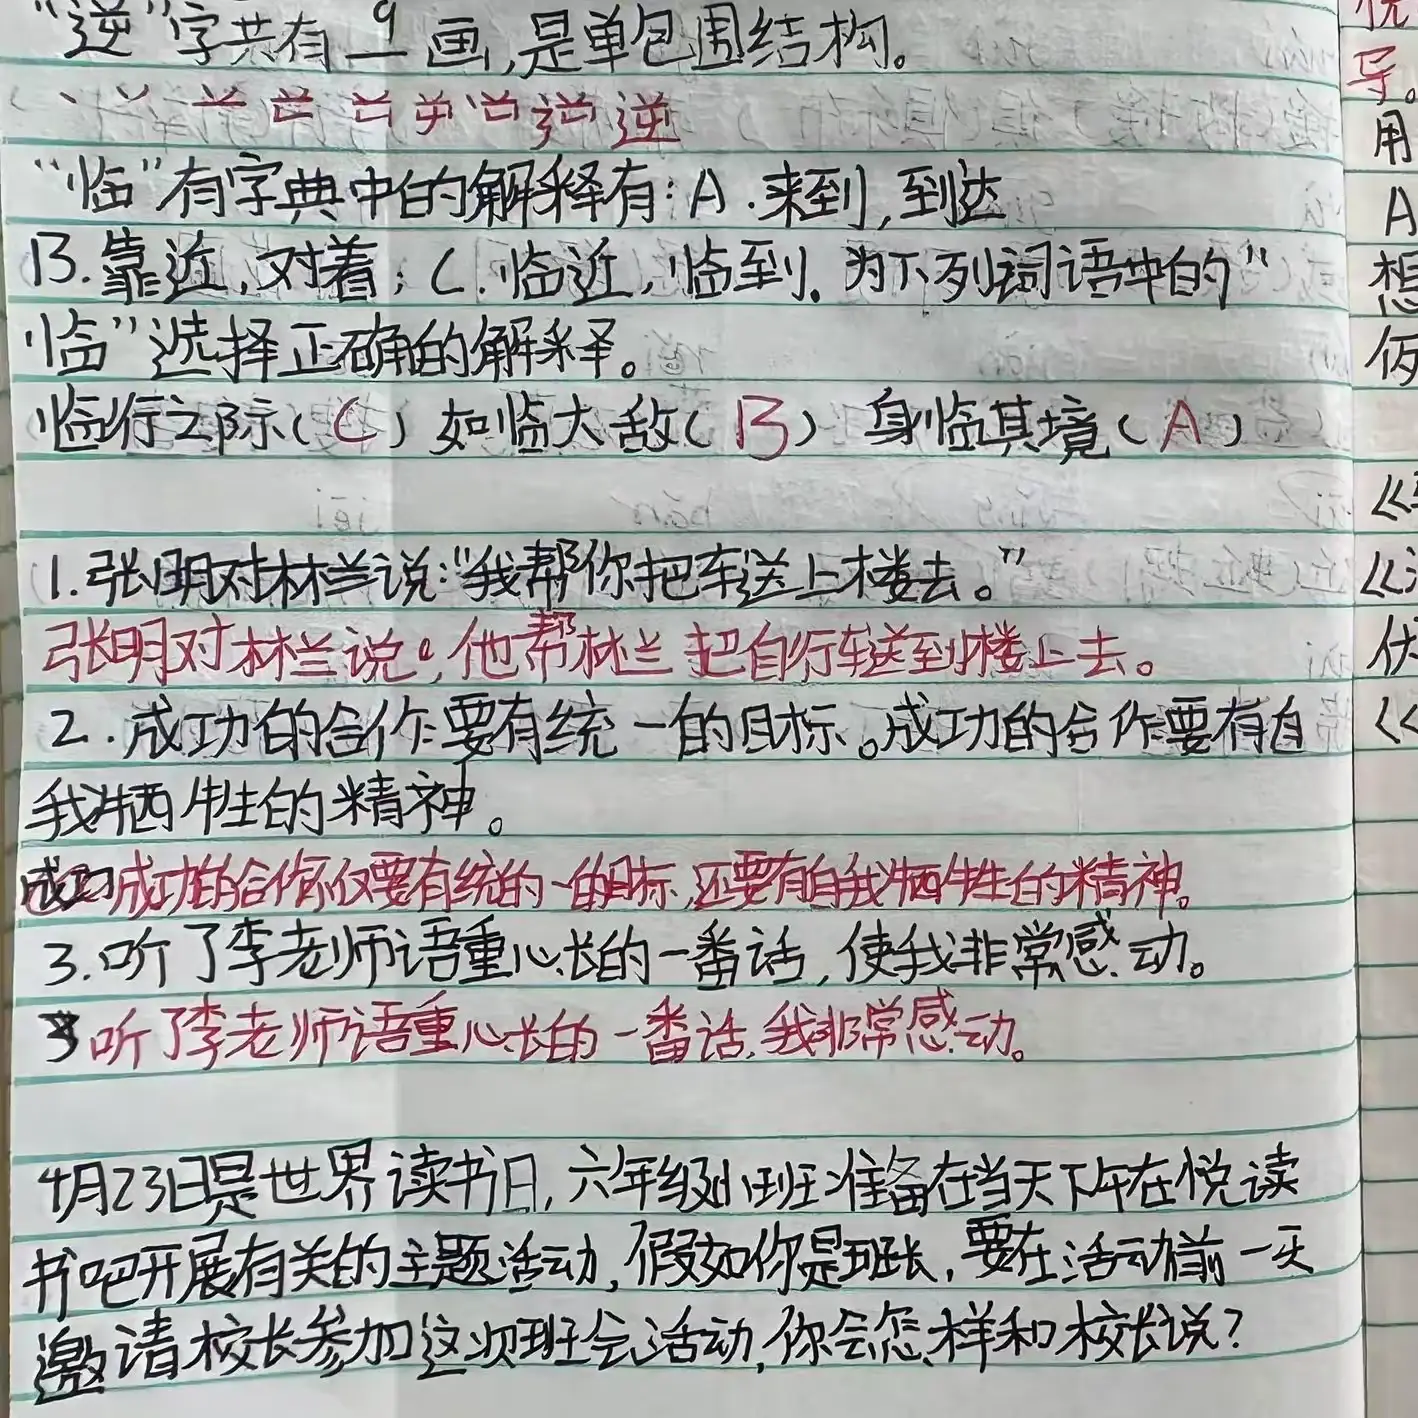 “逆”字共有9画,是单包围结构。
丶 丷 䒑 逆 逆
“临”有字典中的解释有:A.来到,到达
B.靠近,对着;C.临近,临到。为下列词语中的“
临”选择正确的解释。
临行之际(C)如临大敌(B)身临其境(A)
1.张明对林兰说:“我帮你把车送上楼去。”
张明对林兰说。,他帮林兰把自行车送到楼上去。
2.成功的合作要有统一的目标。成功的合作要有自
我牺牲的精神。
成功的合作不仅要有统的一的目标,还要有自我牺牲的精神。
3.听了李老师语重心长的一番话,使我非常感动。
3 听了李老师语重心长的一番话,我非常感动。
4月23日是世界读书日,六年级小班准备在当天下午在悦读
书吧开展有关的主题活动,假如你是班长,要在活动前一天
邀请校长参加这次班会活动,你会怎样和校长说?
导。
用
A
想
《
《
伏
《